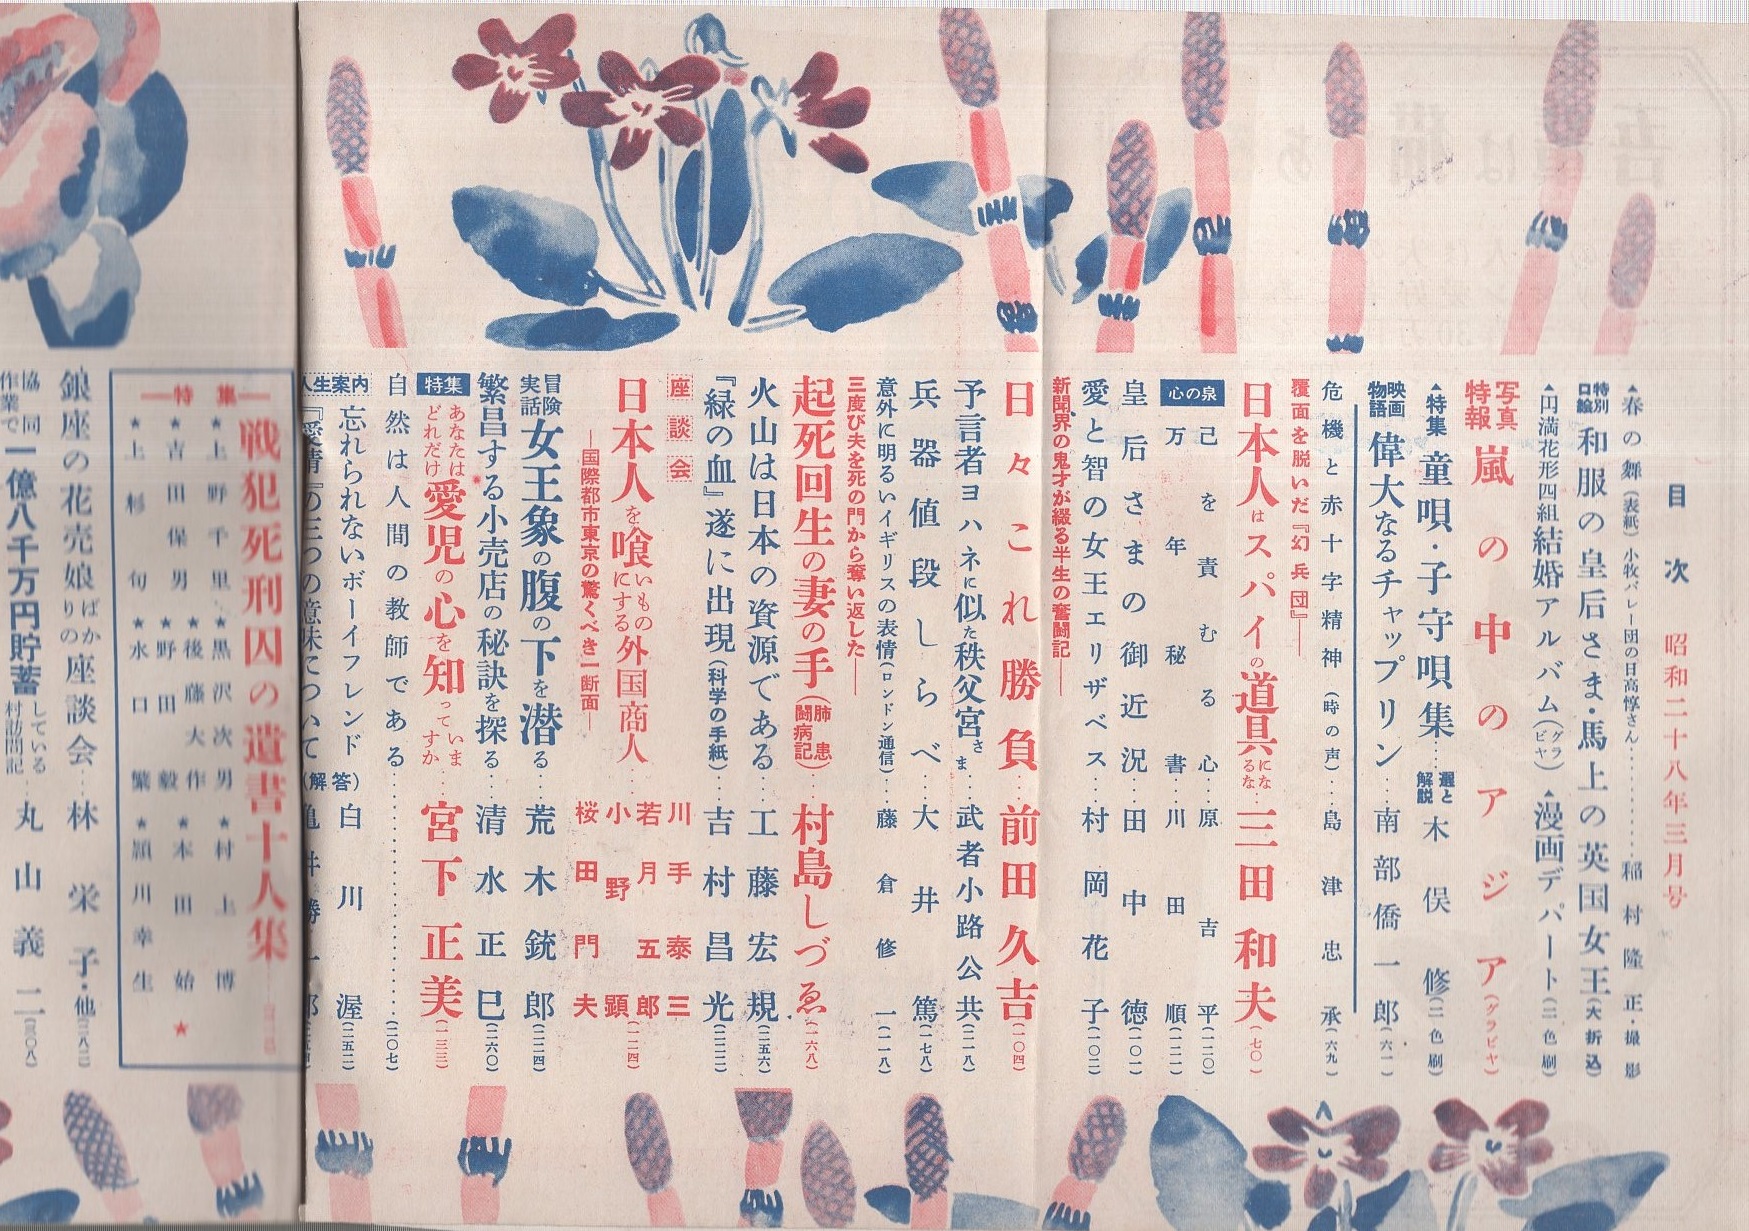 目次 昭和二十八年三月号
▲春の舞(表紙)小牧バレー団の日高惇さん………稲村隆正・撮影
特別口絵 和服の皇后さま・馬上の英国女王(大折込)
▲円満花形四組結婚アルバム(グラビヤ)▲漫画デパート(二色刷)
写真特報 嵐の中のアジア(グラビヤ)
▲特集 童唄・子守唄集…選と解説 木俣修(二色刷)
映画物語 偉大なるチャップリン…南部僑一郎(六一)
危機と赤十字精神(時の声)…島津忠承(六九)
覆面を脱いだ『幻兵団』――
日本人はスパイの道具になるな…三田和夫(七〇)
心の泉
己を責むる心…原吉平(一二〇)
万年秘書…川田順(一二一)
皇后さまの御近況…田中徳(一〇一)
愛と智の女王エリザベス…村岡花子(一〇二)
新聞界の鬼才が綴る半生の奮闘記――
日々これ勝負…前田久吉(一〇四)
予言者ヨハネに似た秩父宮さま…武者小路公共(二一八)
兵器値段しらべ…大井篤(一七八)
意外に明るいイギリスの表情(ロンドン通信)…藤倉修一(一一八)
三度び夫を死の門から奪い返した――
起死回生の妻の手(肺患闘病記)…村島しづゑ(一六八)
火山は日本の資源である…工藤宏規(二五六)
『緑の血』遂に出現(科学の手紙)…吉村昌光(二三二)
座談会
日本人を喰いものにする外国商人…
―国際都市東京の驚くべき一断面―
川手泰三
若月五郎
小野顕
桜田門夫
(一二四)
冒険実話 女王象の腹の下を潜る…荒木銃郎(二二四)
繁昌する小売店の秘訣を探る…清水正巳(二六〇)
特集 あなたはどれだけ愛児の心を知っていますか…宮下正美(一三三)
自然は人間の教師である………(二〇七)
人生案内
忘れられないボーイフレンド
の三つの意味について
(解答)
白川渥(二五二)
―特集―
戦犯死刑囚の遺書十人集
★上野千里★黒沢次男★村上博
★吉田保男★後藤大作★本田始
★野田毅
★上杉句★水口繁★頴川幸生
銀座の花売娘ばかりの座談会…林栄子・他(二八二)
協同作業で一億八千万円貯蓄している村訪問記…丸山義二(三〇八)